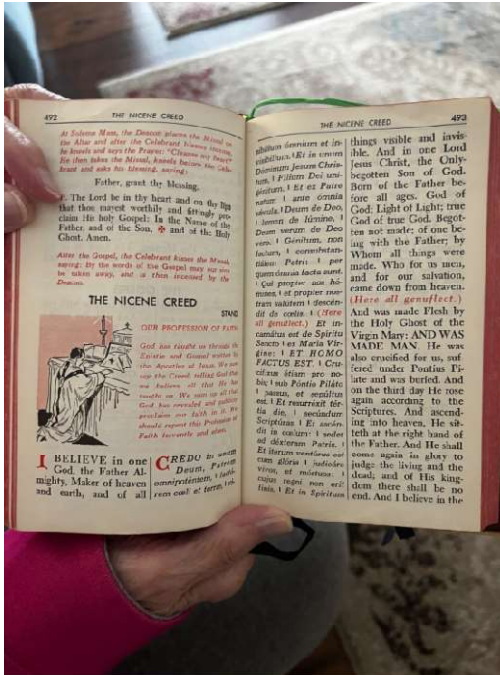 492
THE NICENE CREED
At Solemn Mass, the Deacon places the Missal on
the Altar and after the Celebrant blesses incense,
he kneels and says the Prayer: "Cleanse my heart"
He then takes the Missal, kneels before the Cele-
brant and asks his blessing, saying:
Father, grant thy blessing.
The Lord be in thy heart and on thy lips
that thou mayest worthily and fittingly pro-
claim His holy Gospel: In the Name of the
Father, and of the Son, ✠ and of the Holy
Ghost. Amen.
After the Gospel, the Celebrant kisses the Missal,
saying: By the words of the Gospel may our sins
be taken away, and is then incensed by the
Deacon.
THE NICENE CREED
STAND
OUR PROFESSION OF FAITH
God has taught us through the
Epistle and Gospel written by
the Apostles of Jesus. We now
say the Creed telling God that
we believe all that He has
taught us. We sum up all that
God has revealed and publicly
proclaim our faith in it. We
should repeat this Profession of
Faith fervently and often.
I BELIEVE in one
God, the Father Al-
mighty, Maker of heaven
and earth, and of all
CREDO in unum
Deum, Patrem
omnipoténtem,
rem cœli et terræ,
493
THE NICENE CREED
sibílium ómnium et in-
visibílium. Et in unum
Dóminum Jesum Chris-
tum, Fílium Dei uni-
génitum. Et ex Patre
natum ante ómnia
sǽcula. Deum de Deo,
lumen de lúmine,
Deum verum de Deo
vero. Génitum, non
factum, consubstan-
tiálem Patri: per
quem ómnia facta sunt.
Qui propter nos hó-
mines, et propter nos-
tram salútem descén-
dit de cœlis. (Here
all genuflect.) Et in-
carnátus est de Spíritu
Sancto ex María Vír-
gine: ET HOMO
FACTUS EST. Cru-
cifíxus étiam pro no-
bis; sub Póntio Piláto
passus, et sepúltus
est. Et resurréxit tér-
tia die, secúndum
Scriptúras. Et ascén-
dit in cœlum: sedet
ad déxteram Patris.
Et íterum ventúrus est
cum glória judicáre
vivos, et mórtuos:
cujus regni non erit
finis. Et in Spíritum
things visible and invis-
ible. And in one Lord
Jesus Christ, the Only-
begotten Son of God.
Born of the Father be-
fore all ages. God of
God; Light of Light; true
God of true God. Begot-
ten not made; of one be-
ing with the Father; by
Whom all things were
made. Who for us men,
and for our salvation,
came down from heaven.
(Here all genuflect.)
And was made Flesh by
the Holy Ghost of the
Virgin Mary: AND WAS
MADE MAN. He was
also crucified for us, suf-
fered under Pontius Pi-
late and was buried. And
on the third day He rose
again according to the
Scriptures. And ascend-
ing into heaven, He sit-
teth at the right hand of
the Father. And He shall
come again in glory to
judge the living and the
dead; and of His king-
dom there shall be no
end. And I believe in the